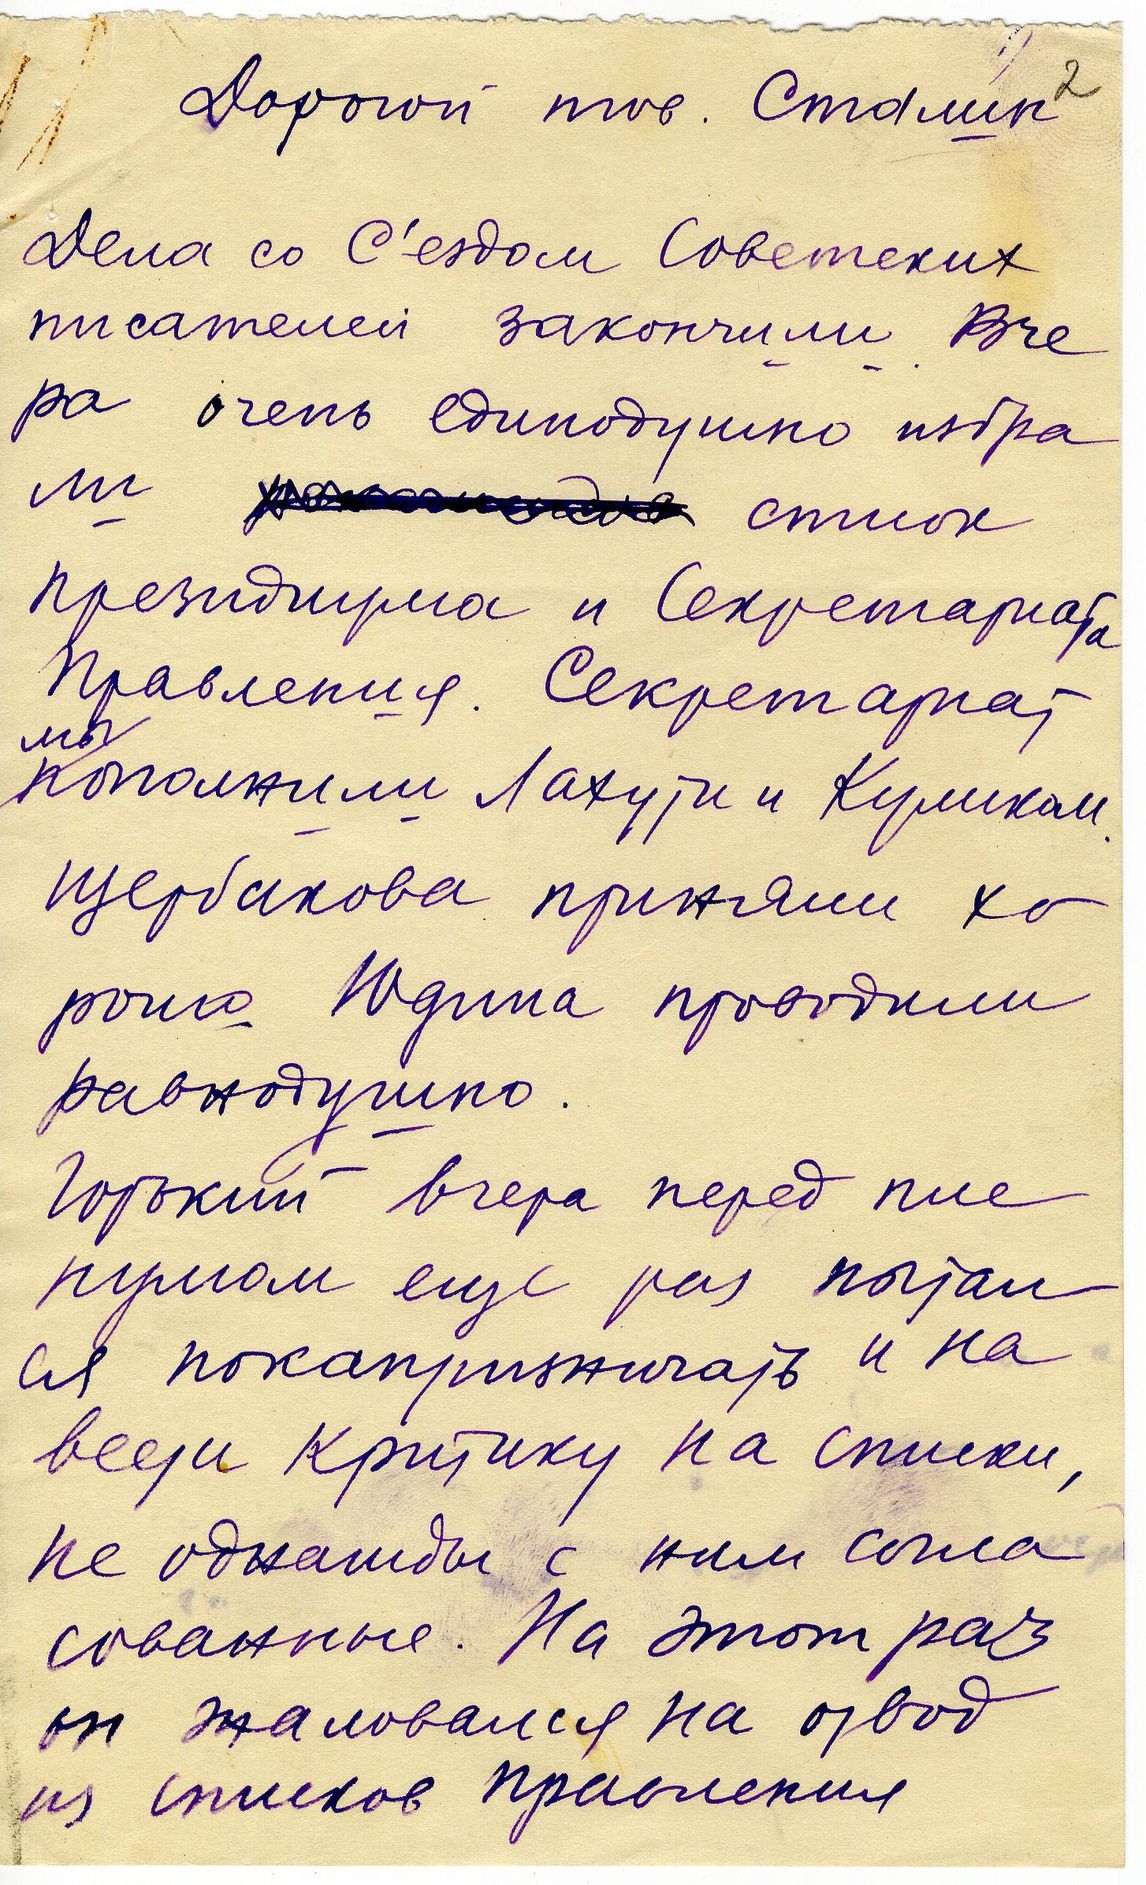 2
Дорогой тов. Сталин
Дела со С'ездом Советских
писателей закончили. Вче
ра очень единодушно избра
ли список
Президиума и Секретариата
Правления. Секретариат
мы
пополнили Лахути и Куликом.
Щербакова приняли хо
рошо Юдина проводили
равнодушно.
Горький вчера перед пле
нумом еще раз пытал
ся покапризничать и на
вести критику на списки,
не однажды с ним согла
сованные. На этот раз
он жаловался на отвод
из списков Правления